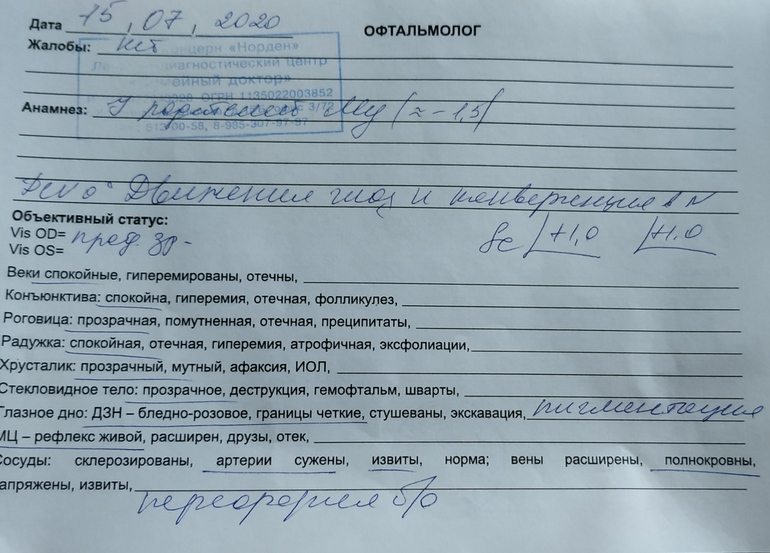 Дата 15, 07, 2020
ОФТАЛЬМОЛОГ
Жалобы: нет
Концерн «Норден»
диагностический центр
доктор»
ОГРН 1135022003852
3/72
8-985-307-97-97
Анамнез: У родителей Му (≈ -1,5)
Dev 0° Движения глаз и конвергенция в N
Объективный статус:
Vis OD= пред. зр-
Vis OS=
Sc +1,0 +1.0
Веки спокойные, гиперемированы, отечны,
Конъюнктива: спокойна, гиперемия, отечная, фолликулез,
Роговица: прозрачная, помутненная, отечная, преципитаты,
Радужка: спокойная, отечная, гиперемия, атрофичная, эксфолиации,
Хрусталик: прозрачный, мутный, афаксия, ИОЛ,
Стекловидное тело: прозрачное, деструкция, гемофтальм, шварты,
Глазное дно: ДЗН – бледно-розовое, границы четкие, стушеваны, экскавация, пигментация
МЦ – рефлекс живой, расширен, друзы, отек,
Сосуды: склерозированы, артерии сужены, извиты, норма; вены расширены, полнокровны,
напряжены, извиты,
переферия б/о